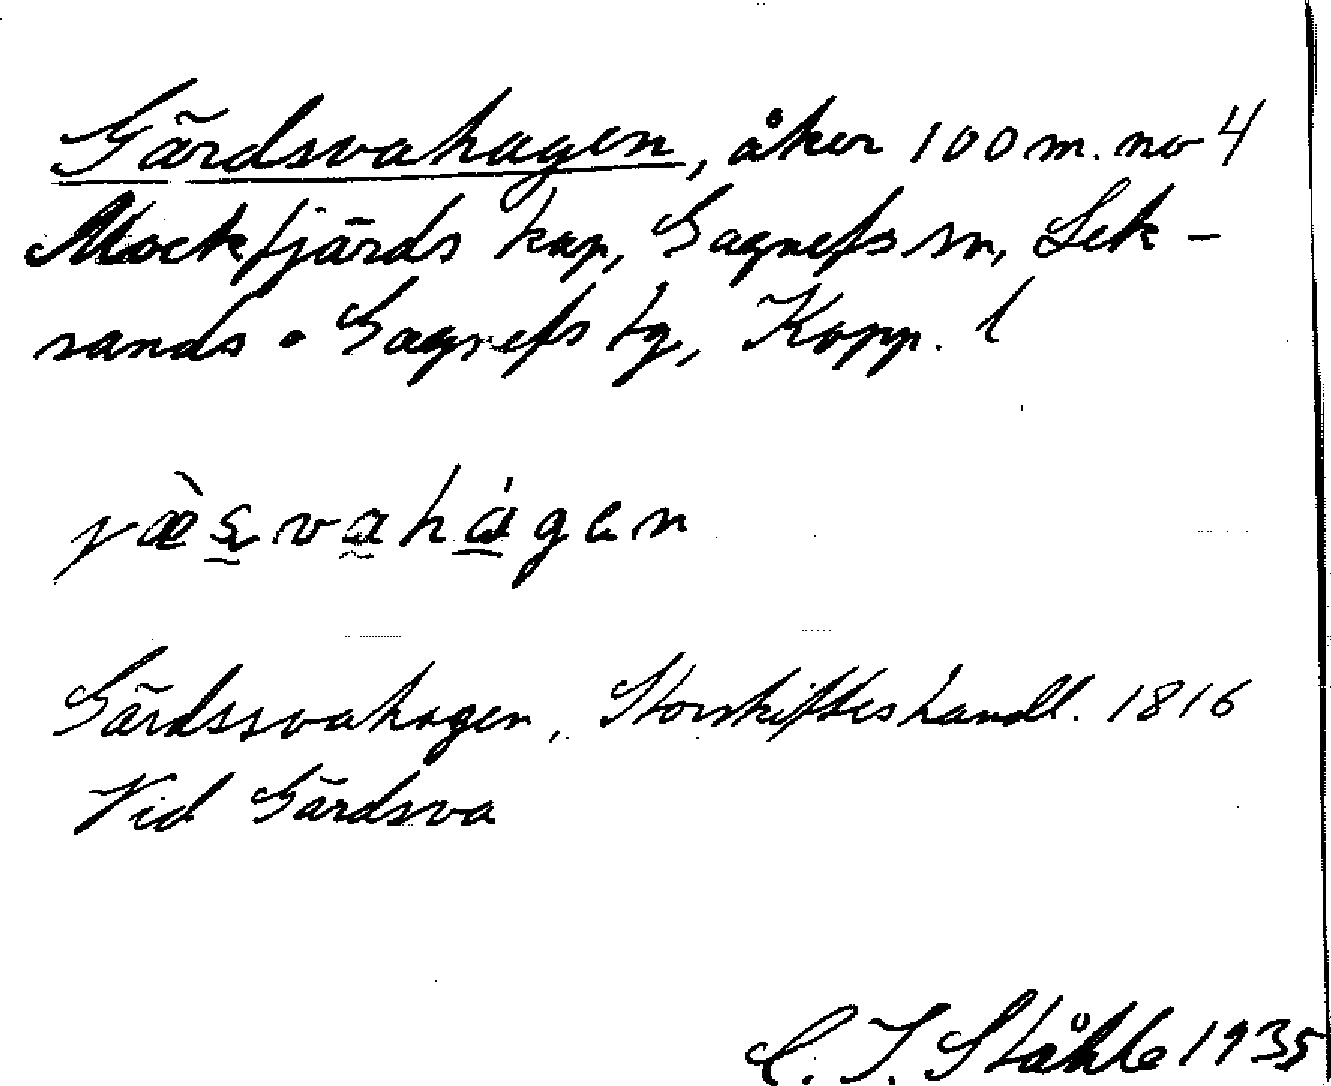 Gärdsvahagen, åker 100 m. no 4
Mockfjärds kap, Gagnefs sn, Lek-
sands o Gagnefs tg, Kopp. l
jæ̀s̱va̱há̱gen
Gärdssvahagen, Storskifteshandl. 1816
Vid Gärdsva
C. I. Ståhle 1935